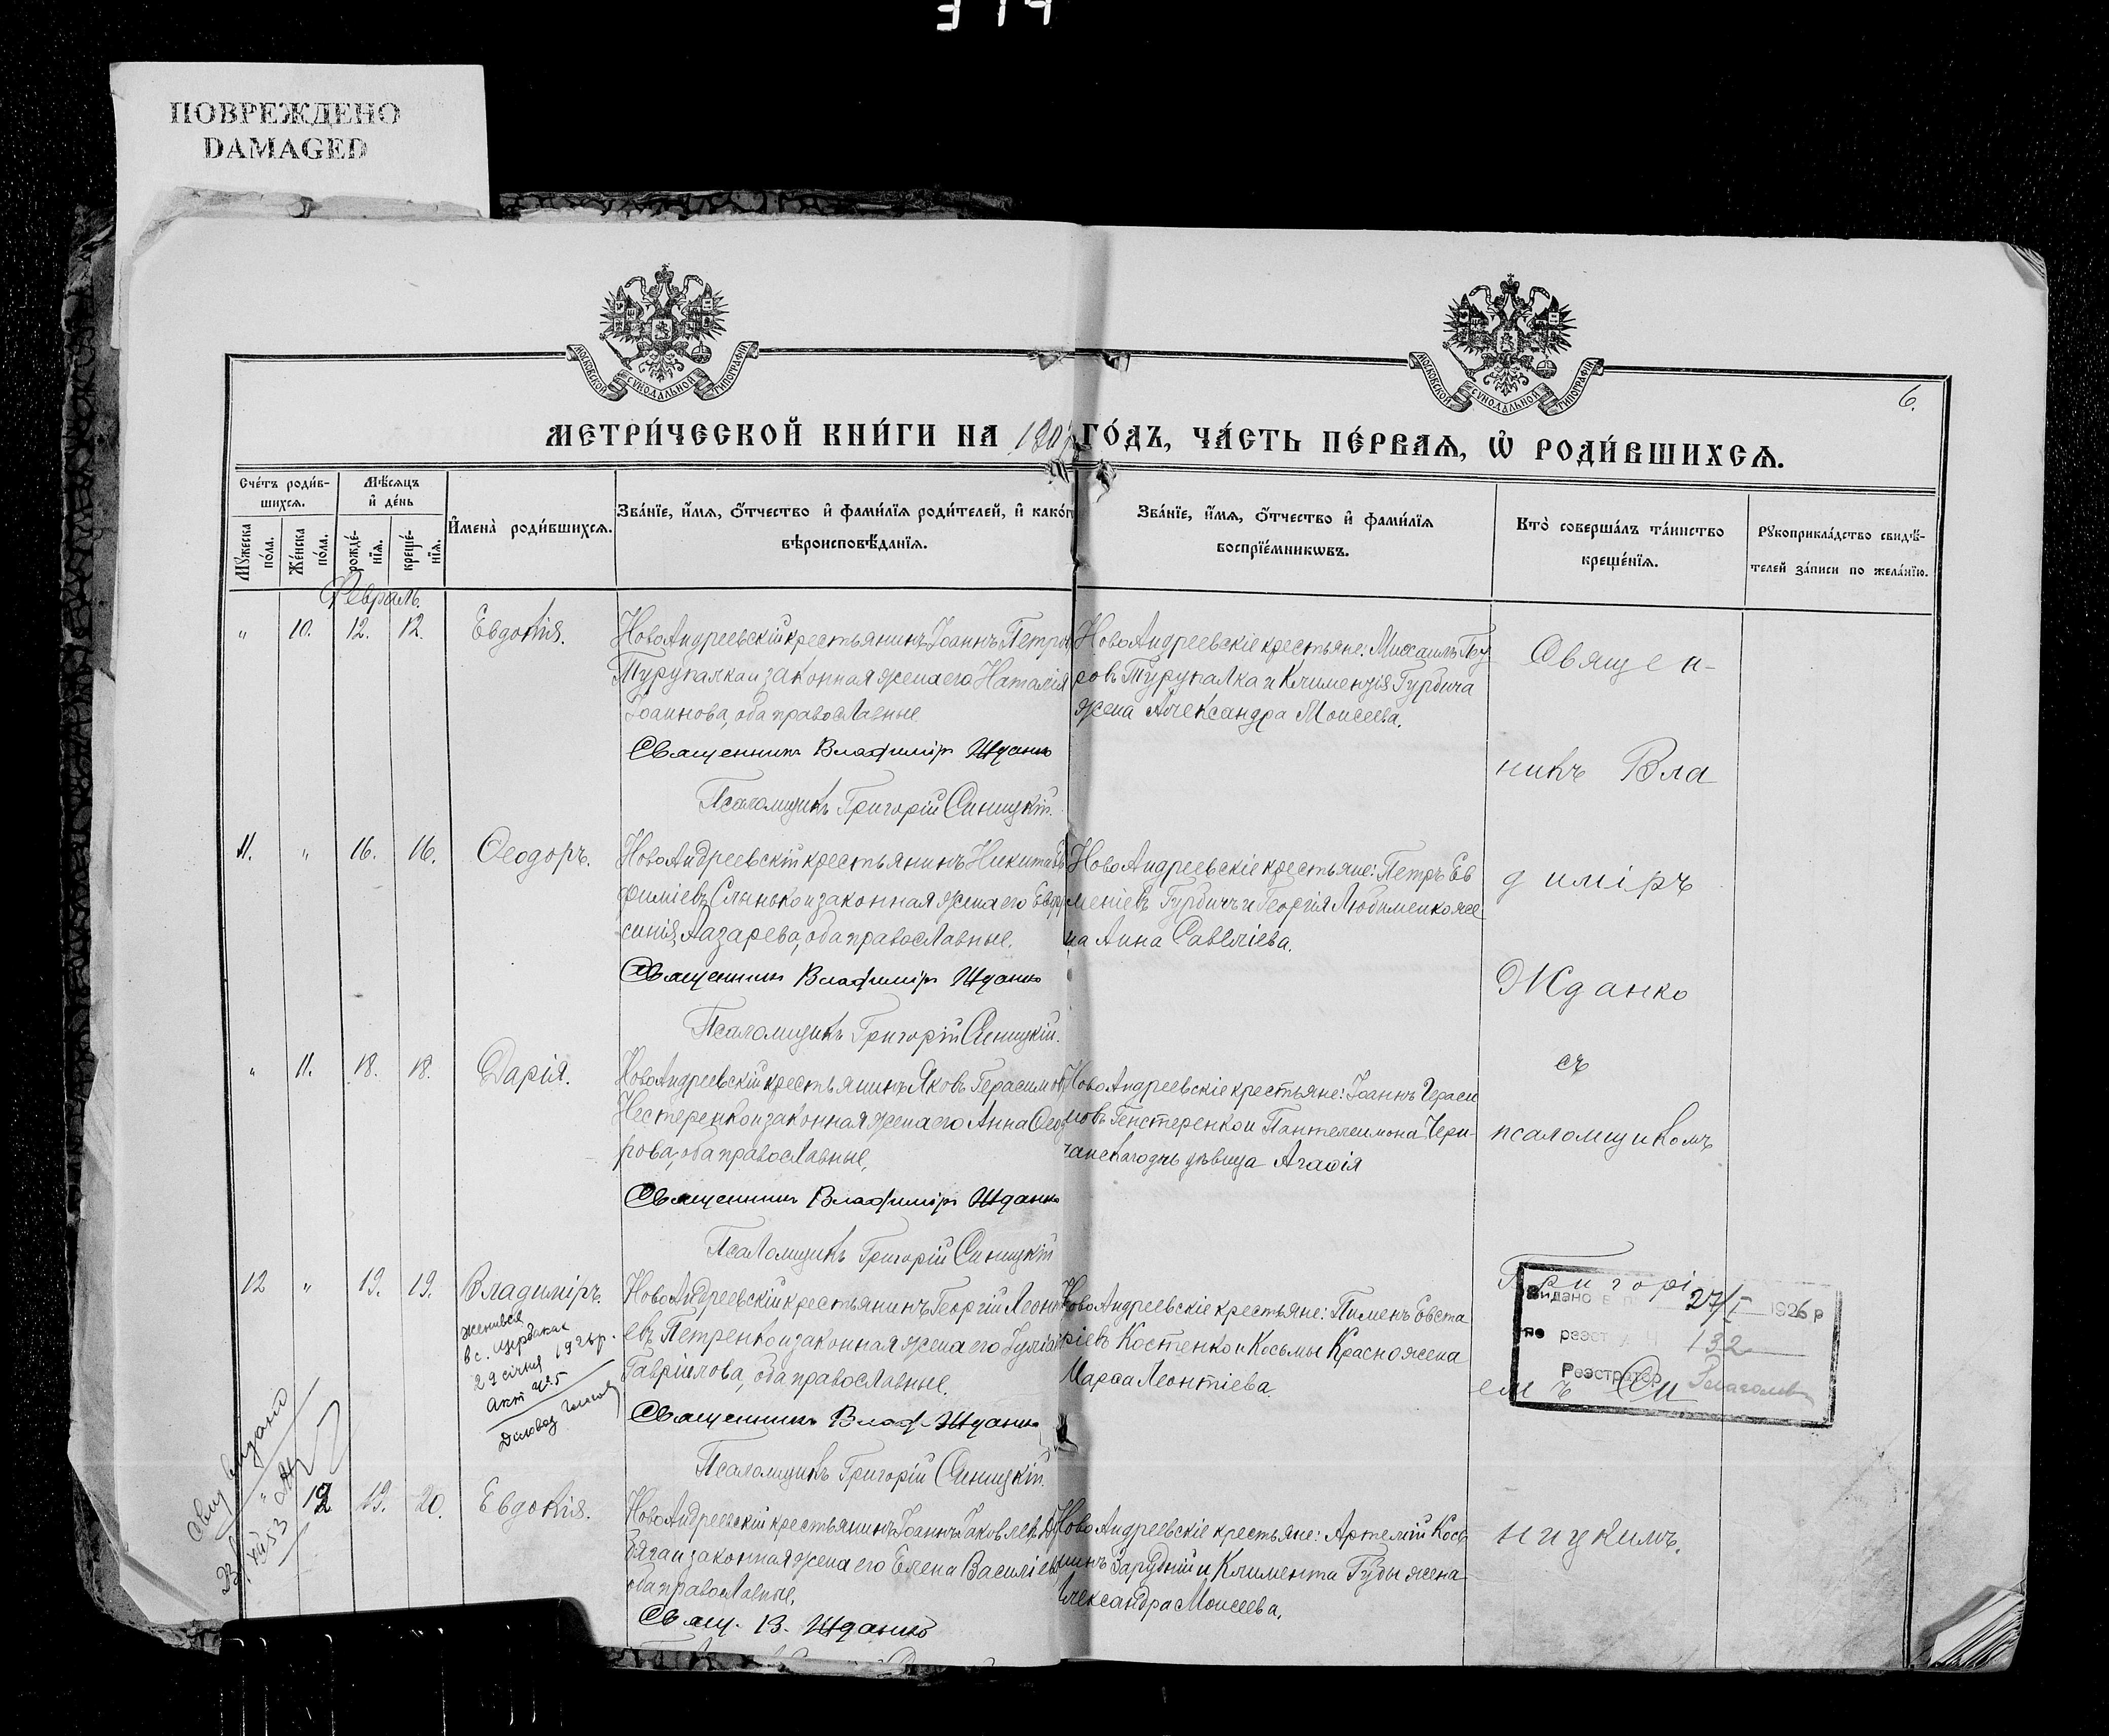 314
ПОВРЕЖДЕНО
DAMAGED
МОСКОВСКОЙ СѴНОДАЛЬНОЙ ТИПОГРАФІИ
МОСКОВСКОЙ СѴНОДАЛЬНОЙ ТИПОГРАФІИ
6.
МЕТРИ́ЧЕСКОЙ КНИ́ГИ НА ГО́ДЪ, ЧА́СТЬ ПЕ́РВАѦ, Ѡ҆ РОДИ́ВШИХСѦ.
Сче́тъ роди́в-
шихсѧ.
Мѣ́сѧцъ
и҆ де́нь
Мꙋ́жеска
по́ла.
Же́нска
по́ла.
рожде́-
нїѧ.
креще́-
нїѧ.
И҆мена̀ роди́вшихсѧ.
Зва́нїе, и҆́мѧ, ѻ҆́тчество и҆ фами́лїѧ роди́телей, и҆ како́гѡ
вѣроисповѣ́данїѧ.
Зва́нїе, и҆́мѧ, ѻ҆́тчество и҆ фами́лїѧ
воспрїе́мникѡвъ.
Кто̀ соверша́лъ та́инство
креще́нїѧ.
Рꙋкоприкла́дство свидѣ́-
телей за́писи по жела́нїю.
Февраль.
" 10. 12. 12. Евдокія.
НовоАндреевскій крестьянинъ Іоаннъ Петровъ
Турупалка и законная жена его Наталія
Іоаннова, оба православные
Священникъ Владиміръ Жданко
Псаломщикъ Григорій Синицкій.
НовоАндреевскіе крестьяне: Михаилъ
ровъ Турупалка и Климентія Гурбича
жена Александра Моисеева.
Священ-
никъ Вла
11. " 16. 16. Ѳеодоръ.
НовоАндреевскій крестьянинъ Никита Ев
фиміевъ Слынько и законная жена его Евфро
синія Лазарева, оба православные.
Священникъ Владиміръ Жданко
Псаломщикъ Григорій Синицкій.
НовоАндреевскіе крестьяне: Петръ Ев
меніевъ Гурбичъ и Георгія Любименко же
на Анна Савеліева.
диміръ
Жданко
съ
" 11. 18. 18. Дарія.
НовоАндреевскій крестьянинъ Яковъ Герасимовъ
Нестеренко и законная жена его Анна Ѳеодо
рова, оба православные,
Священникъ Владиміръ Жданко
Псаломщикъ Григорій Синицкій
НовоАндреевскіе крестьяне: Іоаннъ Гераси
мовъ и Пантелеимона
дѣвица Агафія
псаломщикомъ
12 " 19. 19. Владиміръ.
женився
в с.
29 січня 192 р.
Акт № 5
НовоАндреевскій крестьянинъ Георгій Леонті
евъ Петренко и законная жена его Іулія
Гавріилова, оба православные.
Священникъ Влад. Жданко
Псаломщикъ Григорій Синицкій.
НовоАндреевскіе крестьяне: Пименъ Евста
ѳіевъ Костенко и Косьмы Красно жена
Марѳа Леонтіева.
Григорі
емъ Си
Видано в п. 27/I 1926 р
по реест. Ч 132
Реэстратор
видано
XII 53
" 12 19. 20. Евдокія.
НовоАндреевскій крестьянинъ Іоаннъ Іаковлевъ
бяга и законная жена его Елена Василіева
оба православные,
Свящ. В. Жданко
НовоАндреевскіе крестьяне: Артемій Кось
минъ Зарудній и Климента Губы жена
Александра Моисеева,
ницкимъ.